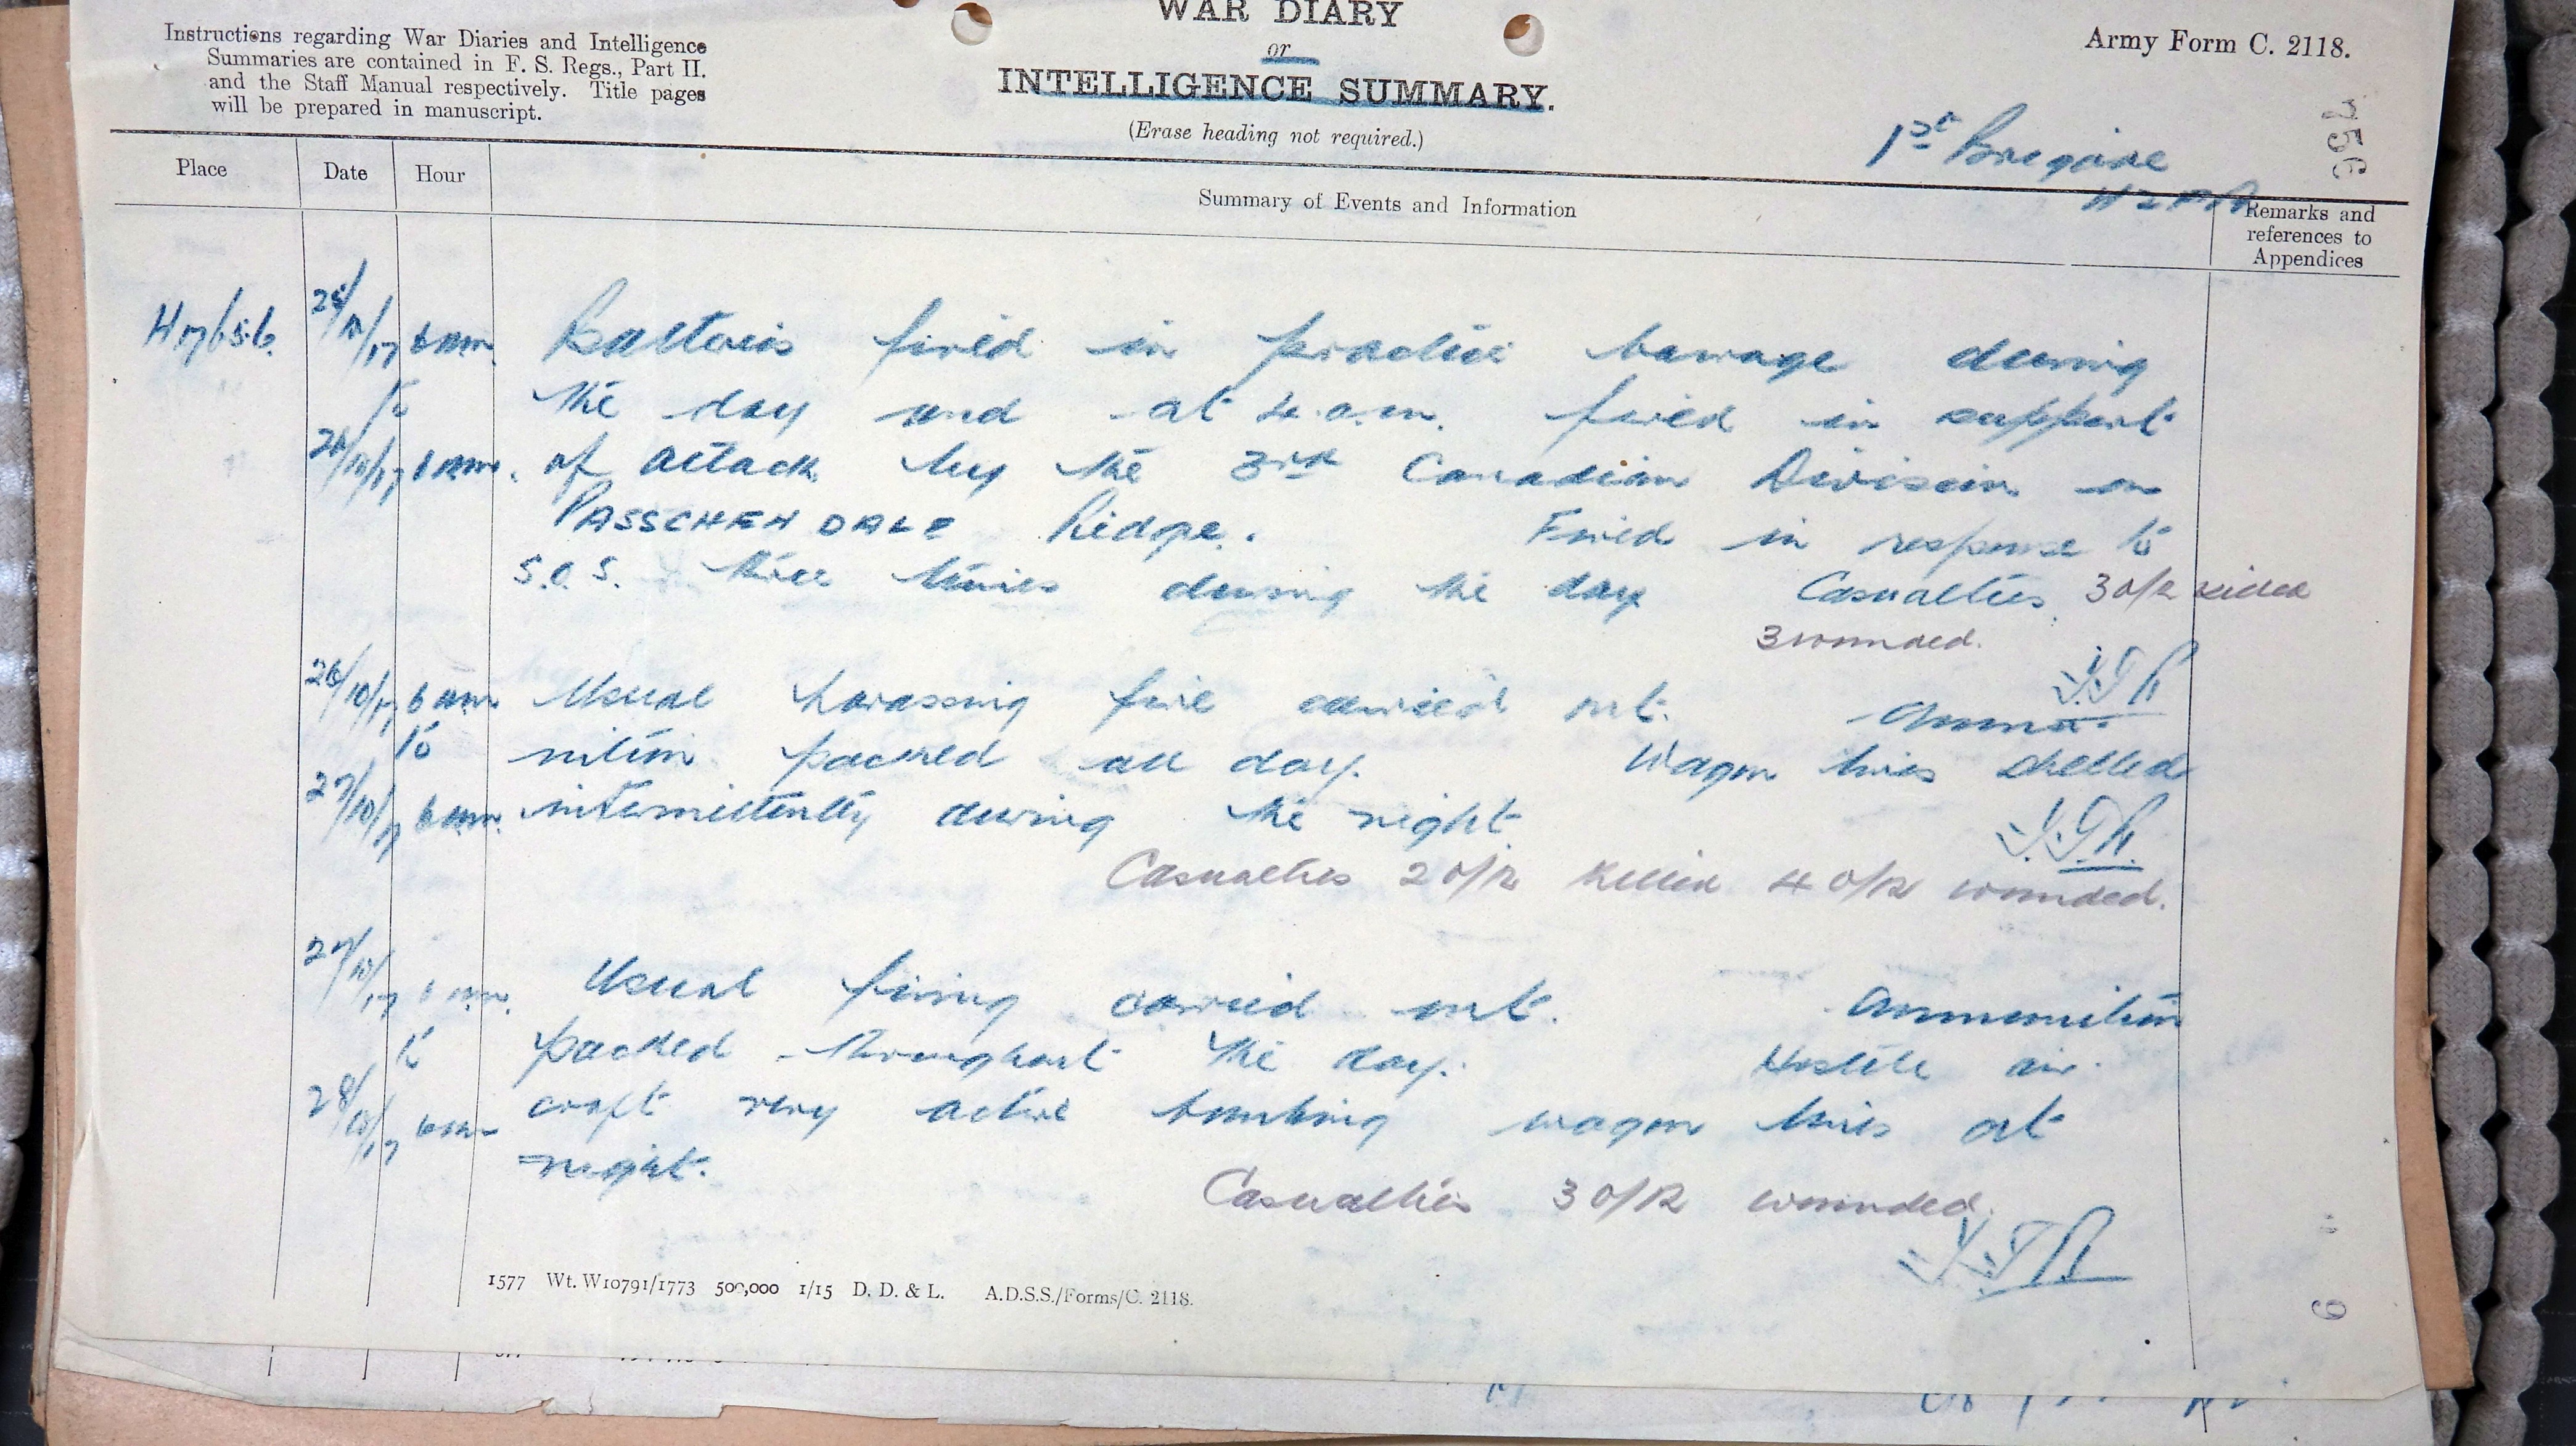 WAR DIARY
or
INTELLIGENCE SUMMARY.
(Erase heading not required.)
Instructions regarding War Diaries and Intelligence
Summaries are contained in F. S. Regs., Part II.
and the Staff Manual respectively. Title pages
will be prepared in manuscript.
Army Form C. 2118.
1st Brigade
NZFA
Place Date Hour Summary of Events and Information Remarks and
references to
Appendices
25/10/17 6 am. Batteries fired in practice barrage during
to the day and at 4 a.m. fired in support
26/10/17 6 am. of attack by the 3rd Canadian Division on
PASSCHENDALE Ridge. Fired in response to
S.O.S. three times during the day Casualties 3 o/R killed
3 wounded.
26/10/17 6 am. Usual harassing fire carried out. Ammu-
to nition packed all day. Wagon lines shelled
27/10/17 6 am. intermittently during the night
Casualties 2 o/R killed 4 o/R wounded.
27/10/17 6 am. Usual firing carried out. Ammunition
to packed throughout the day. Hostile air-
28/10/17 6 am craft very active bombing wagon lines at
night.
Casualties 3 o/R wounded.
1577 Wt. W10791/1773 500,000 1/15 D. D. & L. A.D.S.S./Forms/C. 2118.